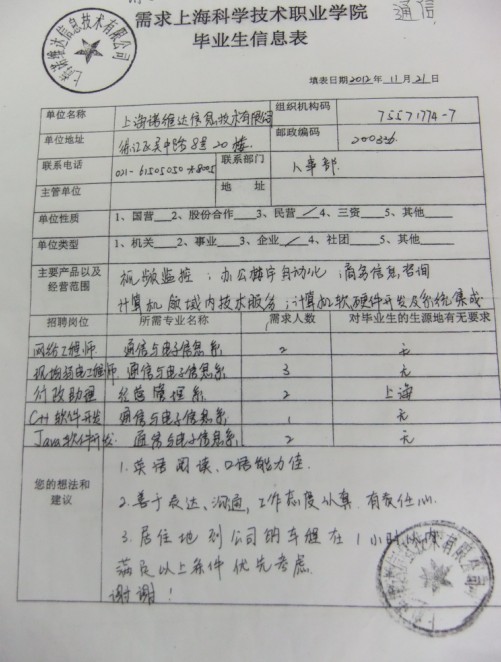 通信
需求上海科学技术职业学院
毕业生信息表
填表日期2012年11月21日
单位名称 上海诺维达信息技术有限公司 组织机构码 75571774-7
单位地址 徐汇区吴中路8号20楼 邮政编码 200326
联系电话 021-61505050 联系部门 人事部
主管单位 地址
单位性质 1、国营 2、股份合作 3、民营✓ 4、三资 5、其他
单位类型 1、机关 2、事业 3、企业✓ 4、社团 5、其他
主要产品以及经营范围 视频监控;办公楼宇自动化;商务信息咨询
计算机领域内技术服务;计算机软硬件开发及系统集成
招聘岗位 所需专业名称 需求人数 对毕业生的生源地有无要求
网络工程师 通信与电子信息系 2 无
现场弱电工程师 通信与电子信息系 3 无
行政助理 经营管理系 2 上海
C++软件开发 通信与电子信息系 1 无
Java软件开发 通信与电子信息系 2 无
您的想法和建议
1.英语阅读、口语能力佳.
2.善于表达、沟通,工作态度认真,有责任心.
3.居住地到公司的车程在1小时以内
满足以上条件优先考虑.
谢谢!
上海诺维达信息技术有限公司